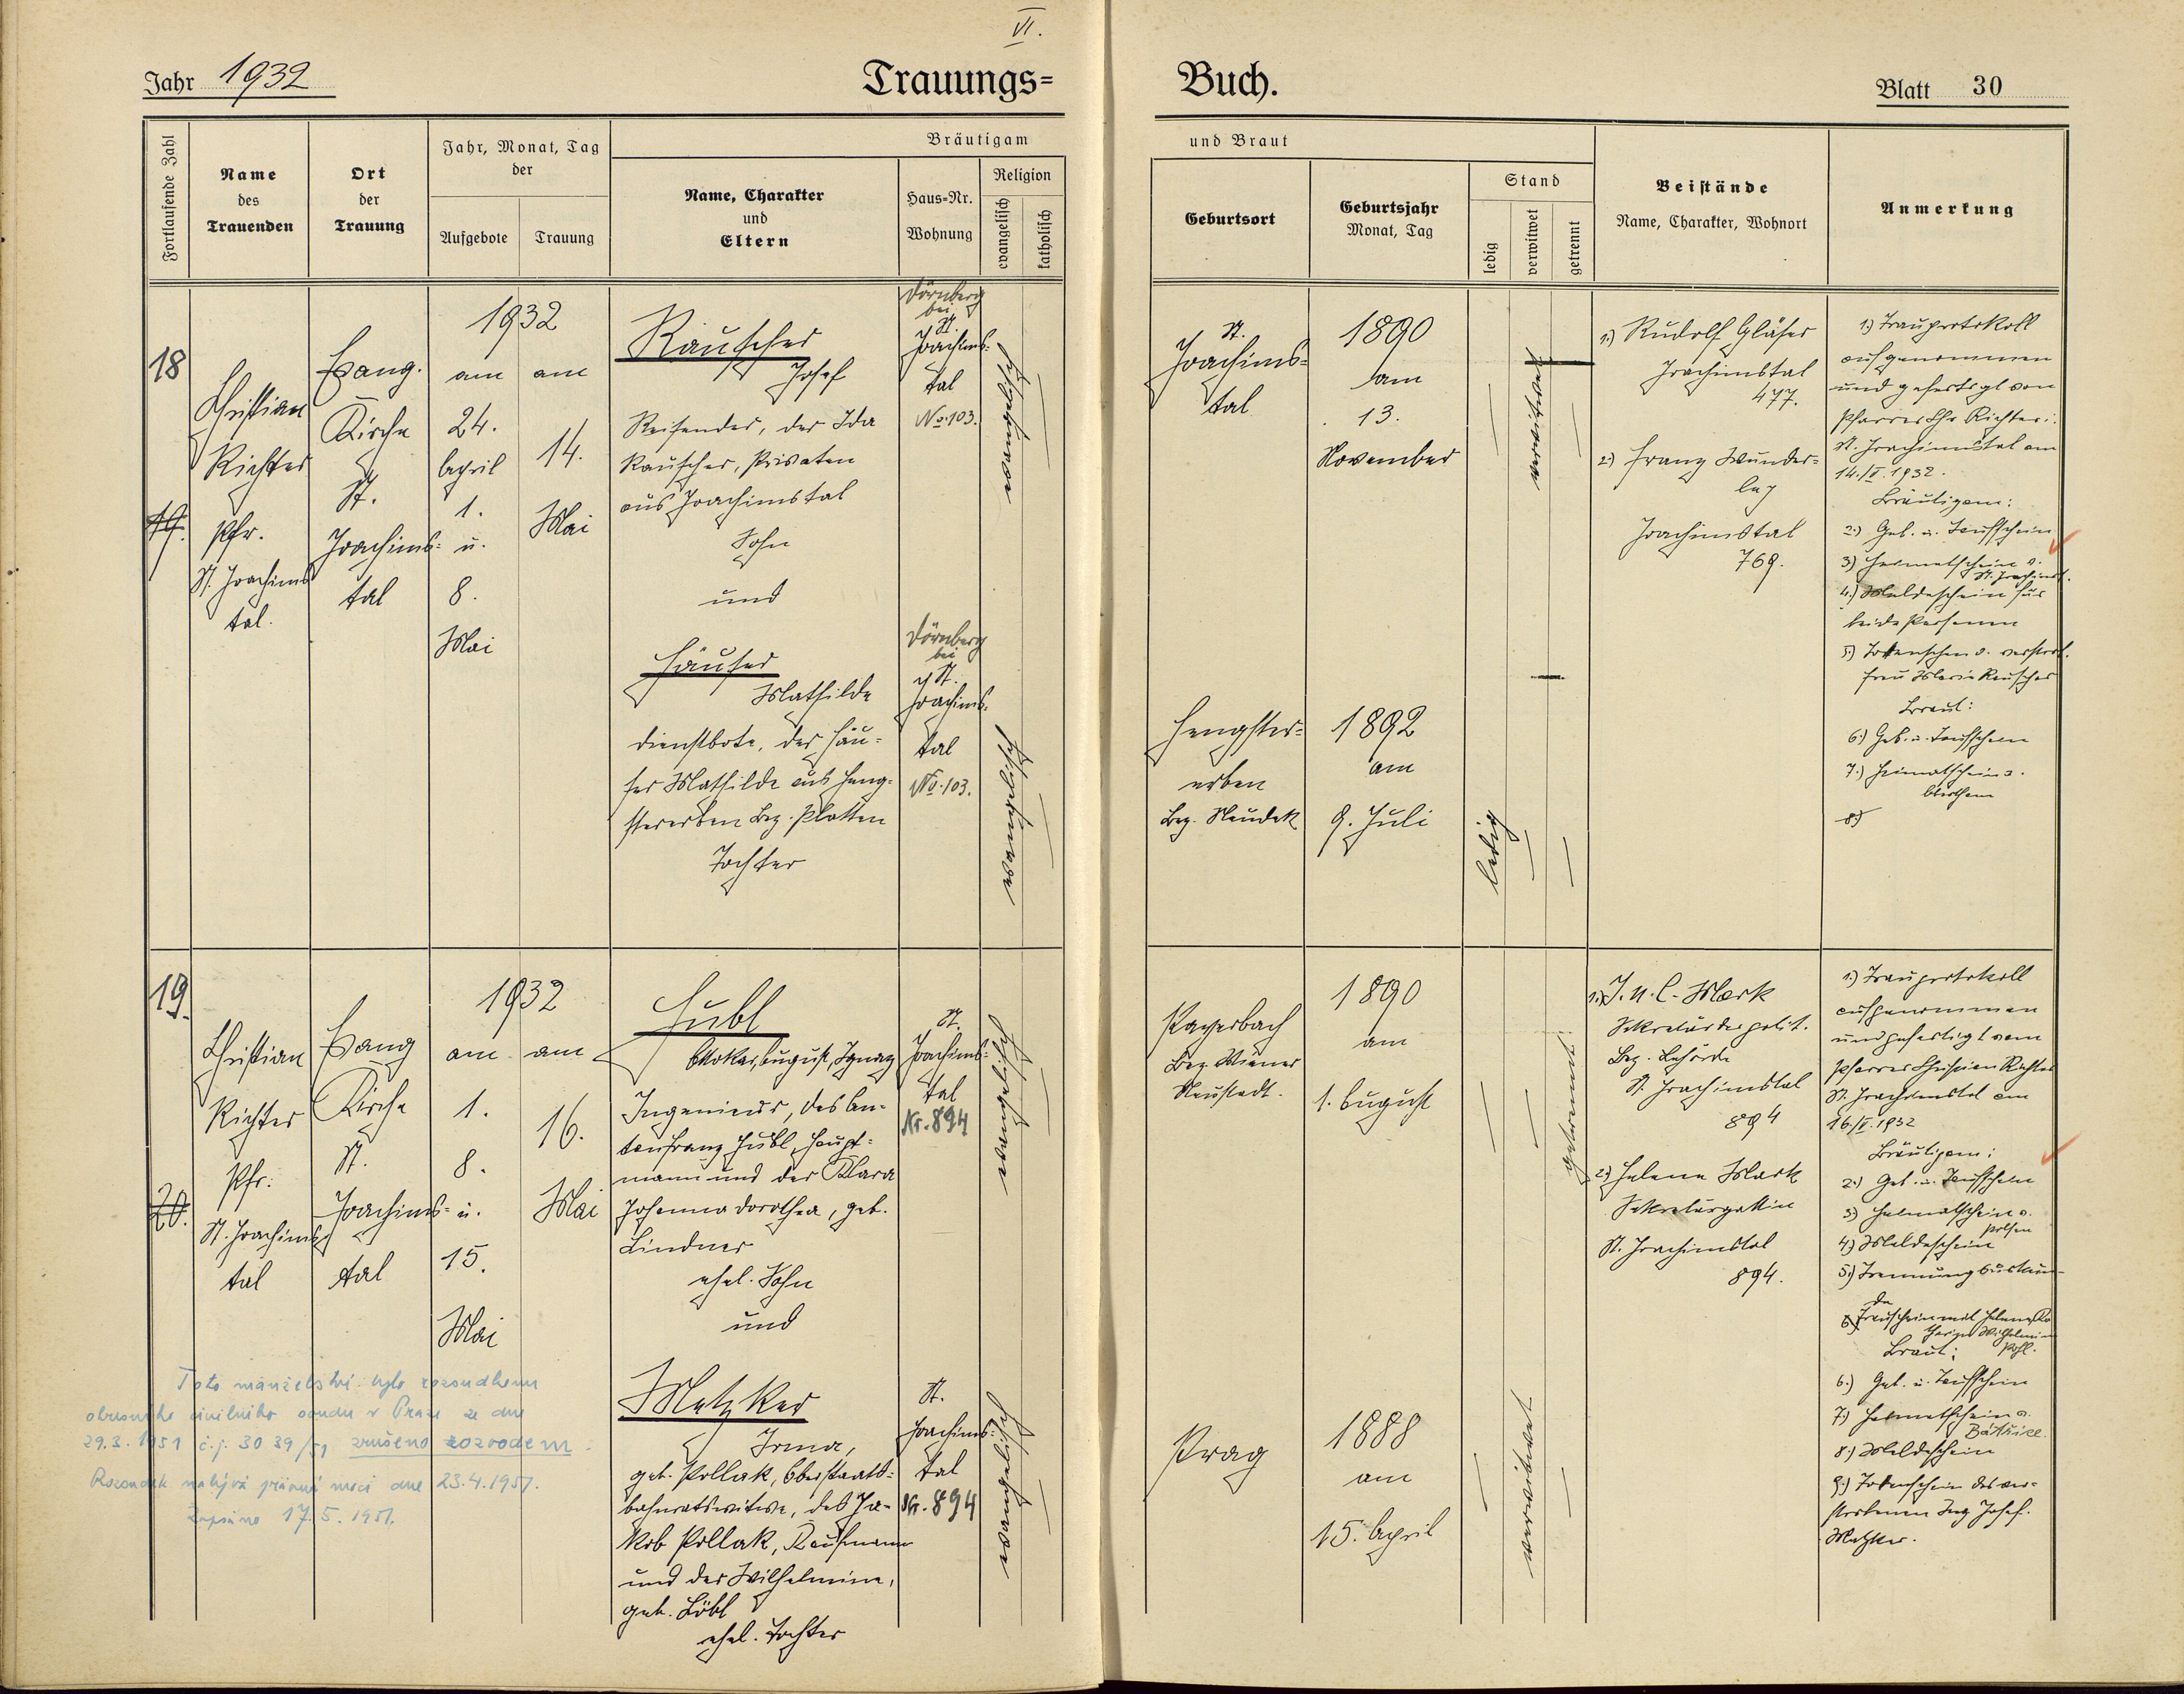 VI.
Jahr 1932
Trauungs=
Buch.
Blatt 30
Fortlaufende Zahl
Name
des
Trauenden
Ort
der
Trauung
Jahr, Monat, Tag
der
Aufgebote
Trauung
Bräutigam
Name, Charakter
und
Eltern
Haus=Nr.
Wohnung
Religion
evangelisch
katholisch
und Braut
Geburtsort
Geburtsjahr
Monat, Tag
Stand
ledig
verwitwet
getrennt
Beistände
Name, Charakter, Wohnort
Anmerkung
18
19.
Christian
Richter
Pfr.
St. Joachims
tal.
Evang.
Kirche
St.
Joachims=
tal
1932
am
24.
April
1.
u.
8.
Mai
am
14.
Mai
Rauscher
Josef
Reisender, der Ida
Rauscher, Privaten
aus Joachimstal
Sohn
und
Häuser
Mathilde
Dienstbote, der Häu=
ser Mathilde aus Heng=
stererben Bez. Platten
Tochter
Dörnberg
bei
St.
Joachims=
tal
No. 103.
Dörnberg
bei
St.
Joachims=
tal
No. 103.
evangelisch
evangelisch
St.
Joachims=
tal
1890
am
13.
November
verwitwet
Hengster=
erben
Bez. Neudek
1892
am
9. Juli
ledig
1.) Rudolf Gläser
Joachimstal
477.
2.) Franz Wunder=
Joachimstal
769.
1.) Trauprotokoll
aufgenommen
und gefertigt von
Pfarrer Chr. Richter:
St. Joachimstal am
14./V. 1932.
Bräutigam:
2.) Geb. u. Taufschein
3.) Heimatschein v.
St. Joachimst.
4.) Meldeschein für
beide Personen
5.) Totenschein d. verstorb.
Frau Marie Rauscher
Braut:
6.) Geb. u. Taufschein
7.) Heimatschein v.
8.)
19.
20.
Christian
Richter
Pfr.
St. Joachims
tal
Evang
Kirche
St.
Joachims=
tal
1932
am
1.
8.
u.
15.
Mai
am
16.
Mai
Hubl
Ottokar, August, Ignaz
Ingenieur, des An=
ton Franz Hubl, Haupt=
mann und der Klara
Johanna Dorothea, geb.
Lindner
ehel. Sohn
und
Metzker
Irma,
geb. Pollak, Oberstaats=
bahnratswitwe, des Ja=
kob Pollak, Kaufmann
und der Wilhelmine,
geb. Löbl
ehel. Tochter
St.
Joachims=
tal
Nr. 894
St.
Joachims=
tal
Nr. 894
evangelisch
evangelisch
Payerbach
Bez. Wiener
Neustadt.
1890
am
1. August
getrennt
Prag
1888
am
15. April
verwitwet
1.) Mark
Sekretär der polit.
Bez. Behörde
St. Joachimstal
894
2.) Helene Mark
Sekretärgattin
St. Joachimstal
894.
1.) Trauprotokoll
aufgenommen
und gefertigt vom
Pfarrer Christian Richter
St. Joachimstal am
16./V. 1932
Bräutigam:
2.) Geb. u. Taufschein
3.) Heimatschein v.
Pilsen
4.) Meldeschein
5.) Trennungsurkun=
de
Trauschein mit Helene
Wilhelmine
Pohl.
Braut:
6.) Geb. u. Taufschein
7.) Heimatschein v.
8.) Meldeschein
9.) Totenschein des ver=
storbenen Ing. Josef
Metzker.
Toto manželství bylo rozsudkem
okresního civilního soudu v Praze ze dne
29.3.1951 č.j. 30 39/51 zrušeno rozvodem.
Rozsudek nabývá právní moci dne 23.4.1951.
Zapsáno 17.5.1951.